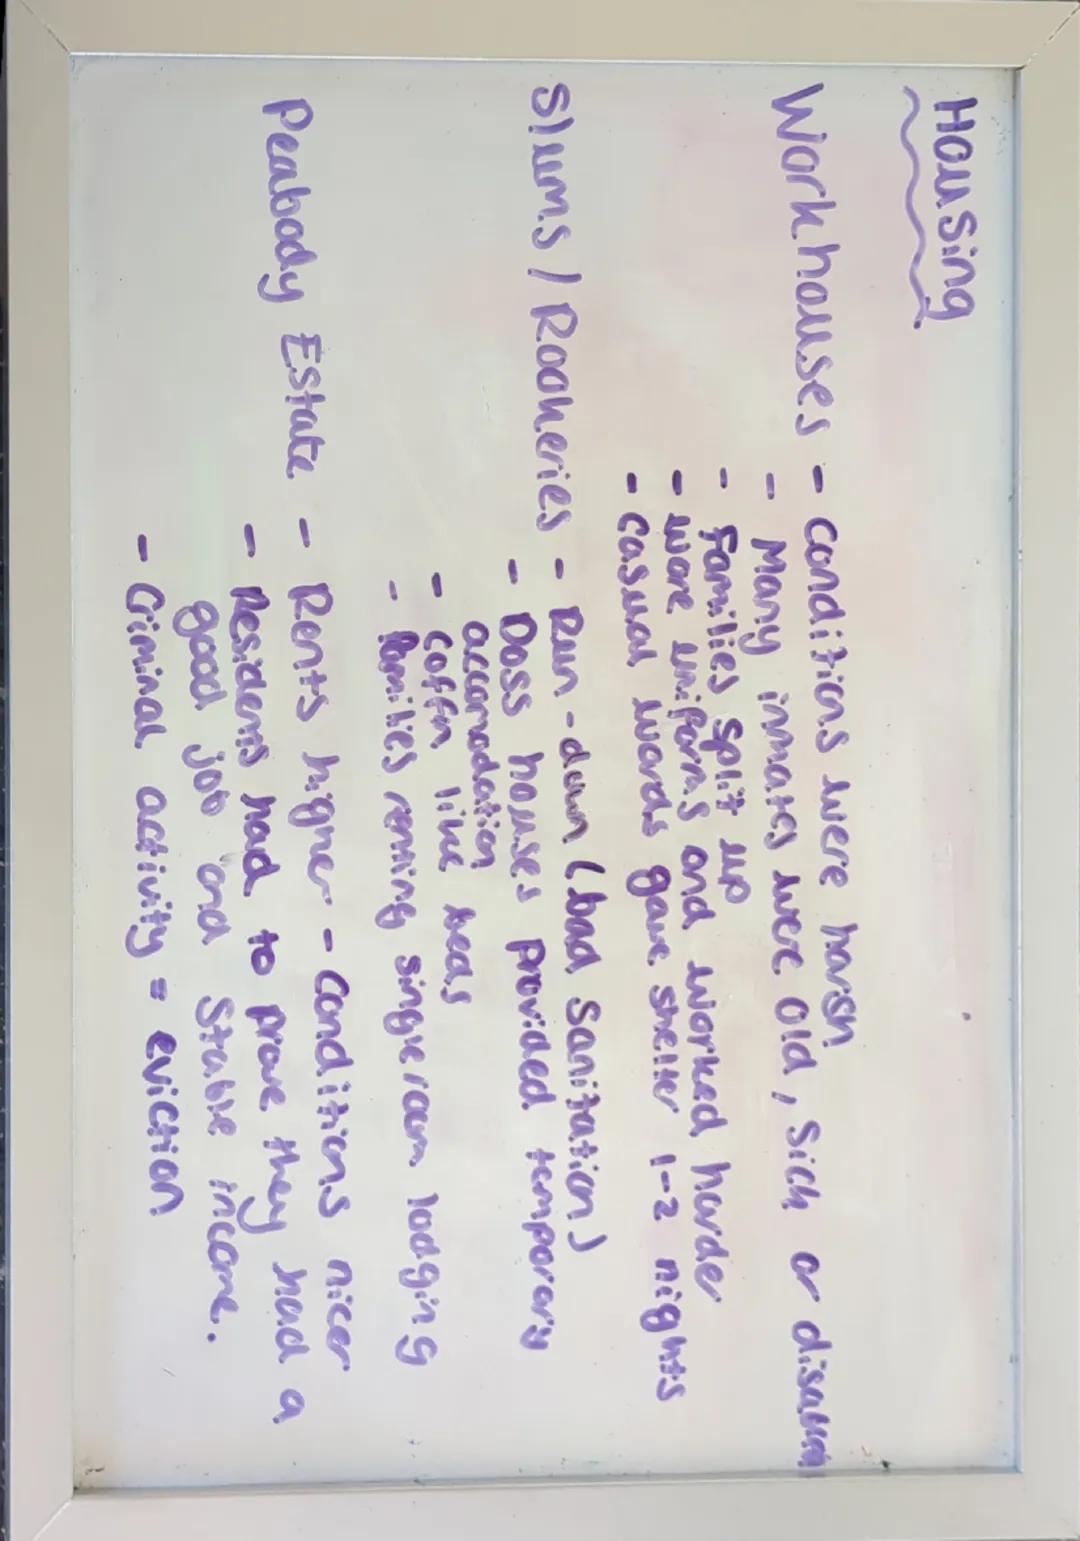 Housing
Workhouses - conditions were harsh
- Many inmates were old, sick or disabled
- Families split up
- wore uniforms and worked harder
- casual wards gave shelter 1-2 nights
Slums / Rookeries - Run-down (bad sanitation)
- Doss houses provided temporary
accomodation
- coffin like beds
- Families renting single room lodging
Peabody Estate - Rents higher - conditions nicer
- Residents had to prove they had a
good job and stable income.
- Criminal activity = eviction